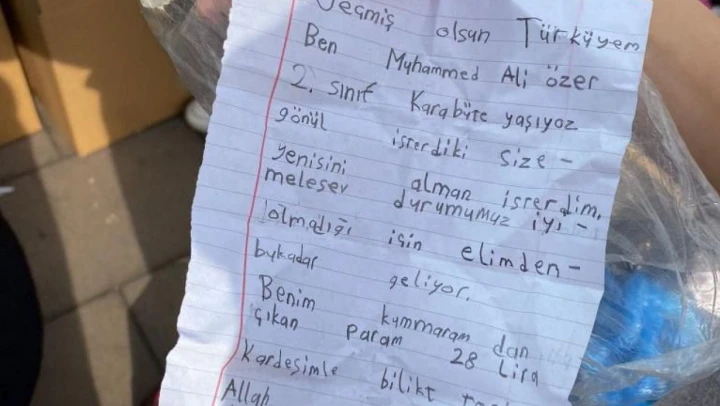 Geçmiş olsun Türküyem
Ben Muhammed Ali özer
2. sınıf Karabüte yaşıyoz
gönül isterdiki size -
yenisini alman isterdim.
melesev durumumuz iyi -
olmadığı için elimden -
bukadar geliyor.
Benim kummaram dan
çıkan param 28 Lira
Kardeşimle bilikt
Allah